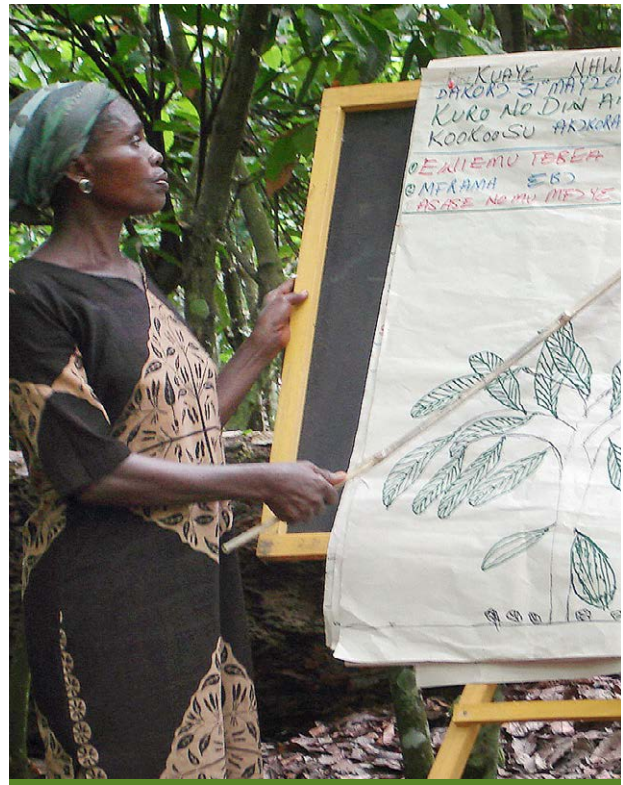 KUAYE NHWI
DAKORƆ 31 MAY 20
KURO NO DIN A
KOOKOOSU AKƆKORA
EWIEMU TEBEA
MFRAMA EBƆ
ASASE NO MU